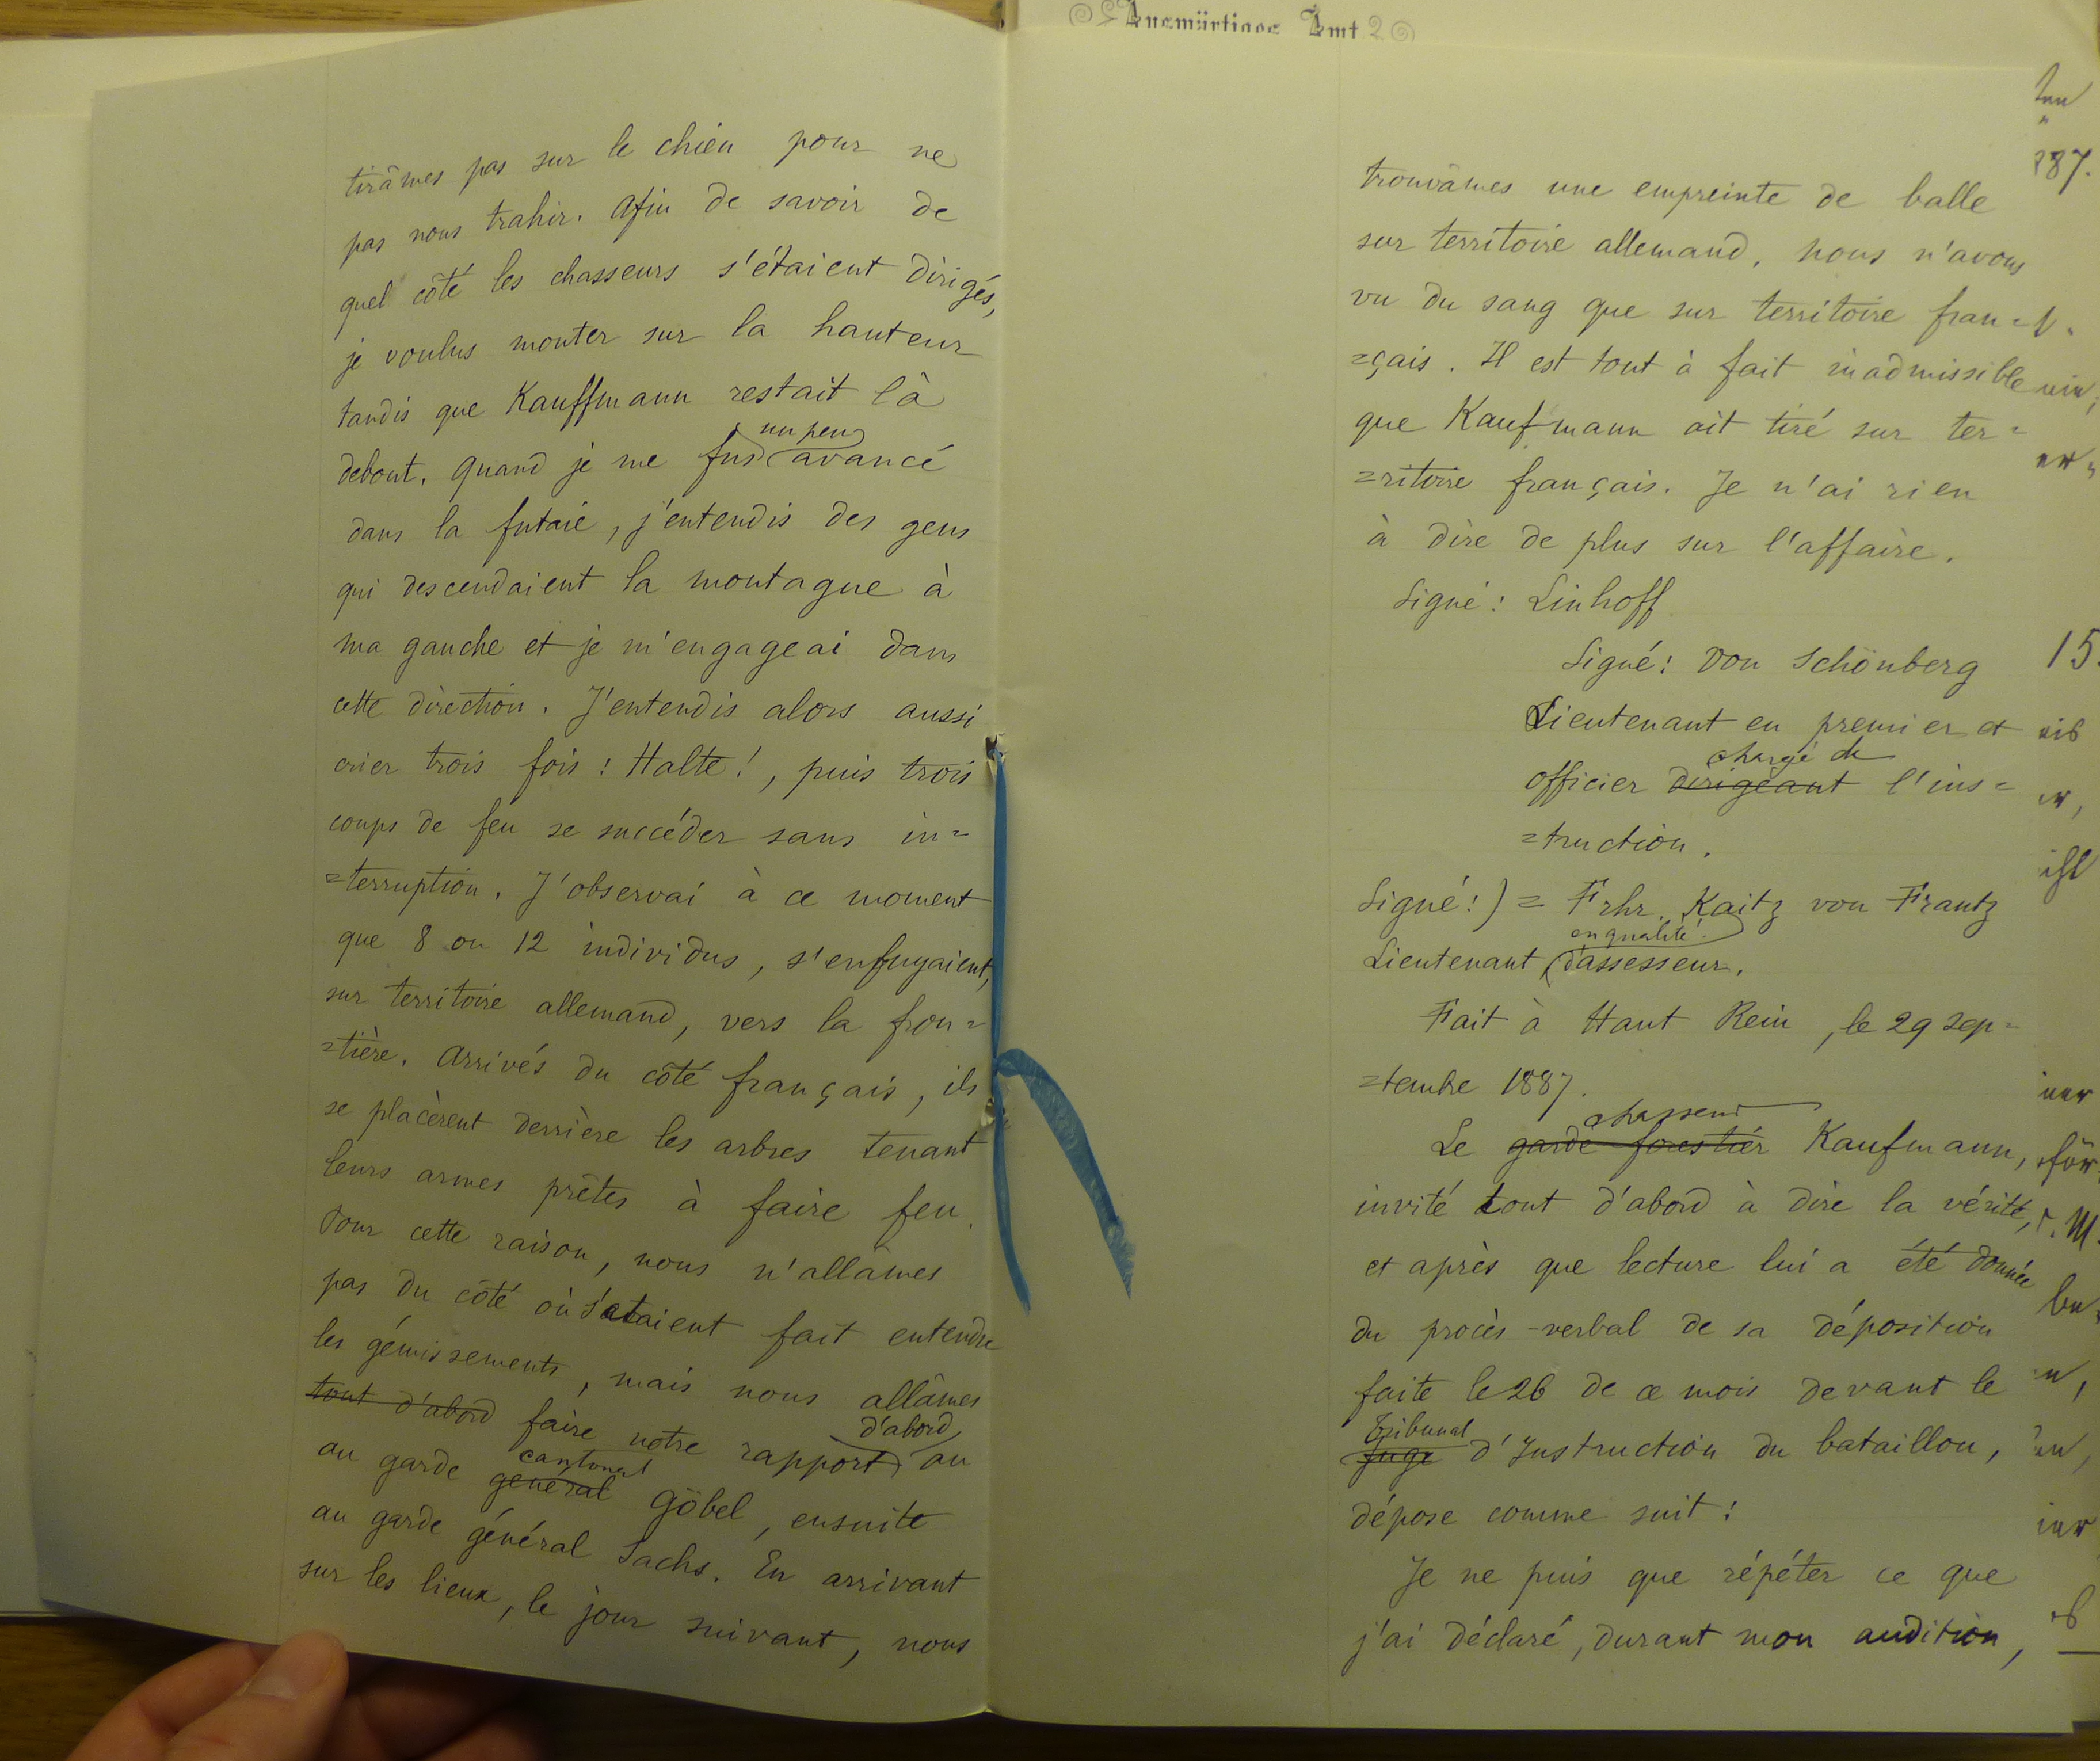 tirâmes pas sur le chien pour ne
pas nous trahir. Afin de savoir de
quel côté les chasseurs s'étaient dirigés,
je voulus monter sur la hauteur
tandis que Kauffmann restait là
un peu
debout. Quand je me fus avancé
dans la futaie, j'entendis des gens
qui descendaient la montagne à
ma gauche et je m'engageai dans
cette direction. J'entendis alors aussi
crier trois fois : Halte!, puis trois
coups de feu se succéder sans in=
=terruption. J'observai à ce moment
que 8 ou 12 individus, s'enfuyaient,
sur territoire allemand, vers la fron=
=tière. Arrivés du côté français, ils
se placèrent derrière les arbres tenant
leurs armes prêtes à faire feu.
Pour cette raison, nous n'allâmes
pas du côté où s'étaient fait entendre
les gémissements, mais nous allâmes
tout d'abord faire notre rapport d'abord au
au garde général cantonal Göbel, ensuite
au garde général Sachs. En arrivant
sur les lieux, le jour suivant, nous
Auswärtiges Amt
trouvâmes une empreinte de balle
sur territoire allemand, nous n'avons
vu du sang que sur territoire fran=
=çais. Il est tout à fait inadmissible
que Kaufmann ait tiré sur ter=
=ritoire français. Je n'ai rien
à dire de plus sur l'affaire.
Signé : Linhoff
Signé : von Schönberg
Lieutenant en premier et
chargé de
officier dirigeant l'ins=
=truction.
Signé :) = Frhr. Kaitz von Frantz
en qualité
Lieutenant d'assesseur.
Fait à Haut Rein, le 29 sep=
=tembre 1887.
chasseur
Le garde forestier Kaufmann,
invité tout d'abord à dire la vérité,
et après que lecture lui a été donnée
du procès-verbal de sa déposition
faite le 26 de ce mois devant le
Tribunal
Juge d'Instruction du bataillon,
dépose comme suit :
Je ne puis que répéter ce que
j'ai déclaré, durant mon audition,
287.
15.